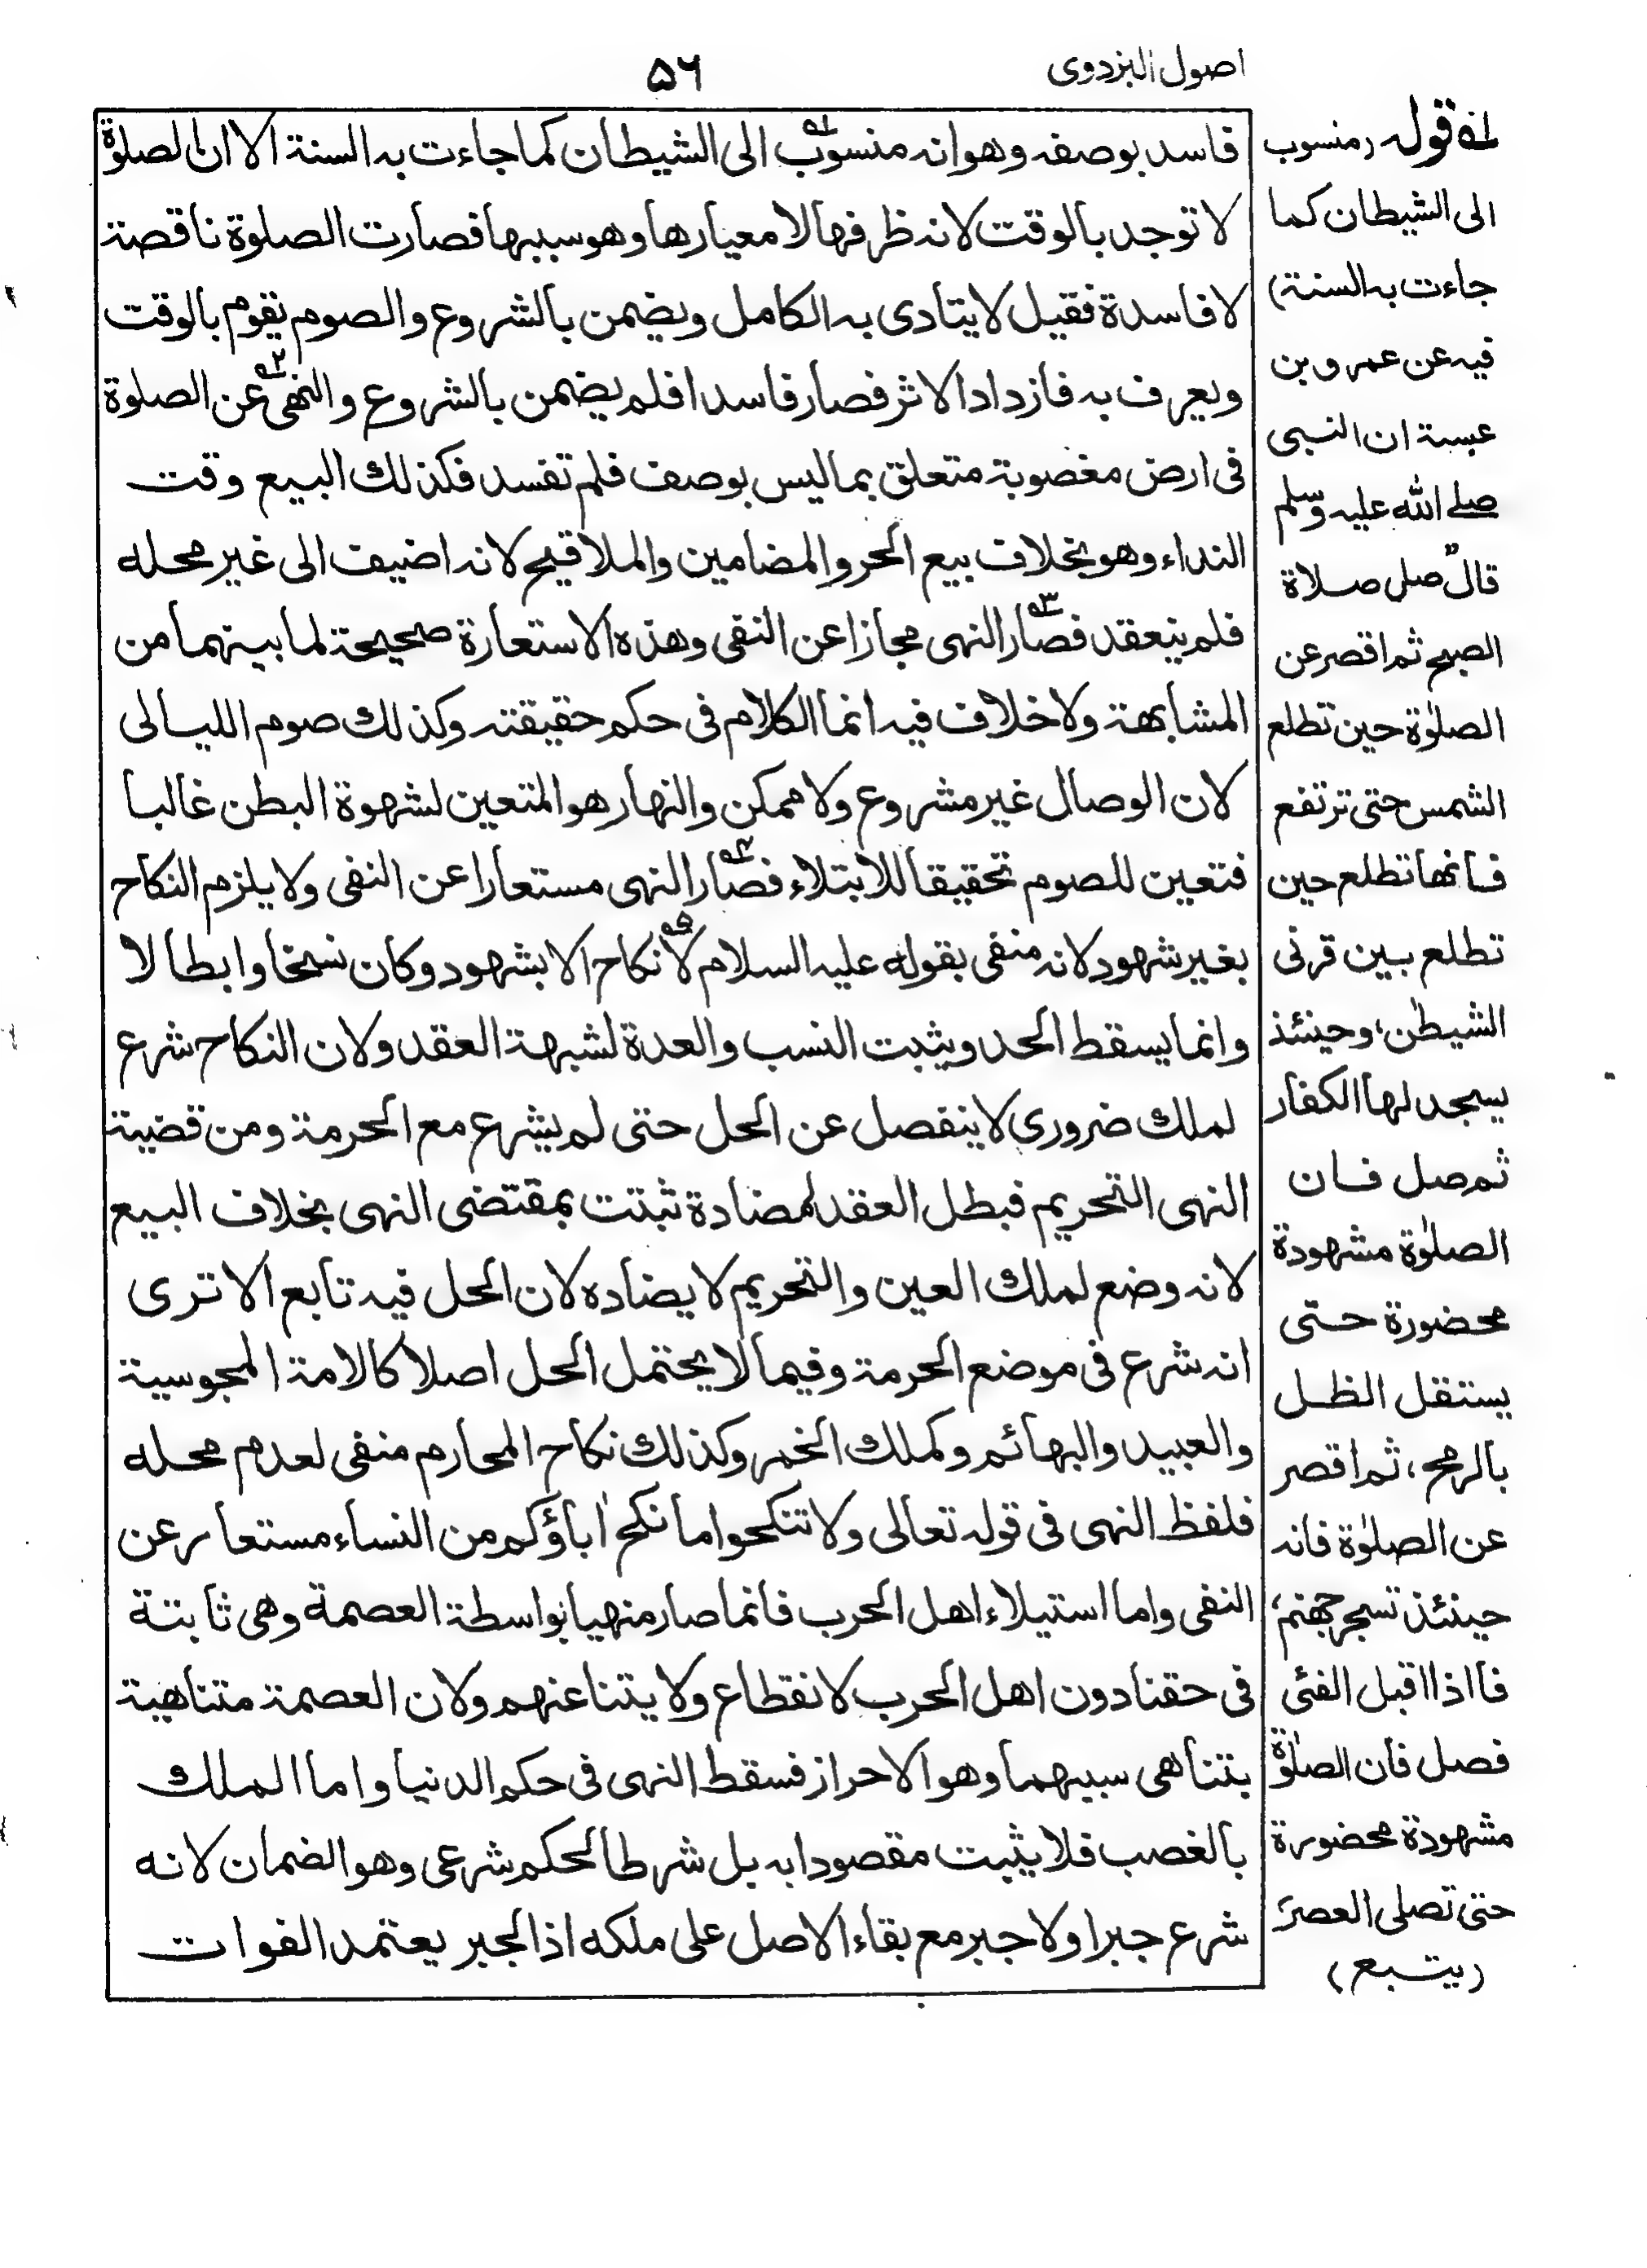 اصول البزدوى
۵۶
فاسد بوصفه وهوانه منسوب الى الشيطان كما جاءت به السنة الا ان الصلوٰة
لا توجد بالوقت لانه ظرفها لا معيارها وهو سببها فصارت الصلوة ناقصة
لا فاسدة فقيل لا يتادى به الكامل ويضمن بالشروع والصوم يقوم بالوقت
ويعرف به فازداد الاثر فصار فاسدا فلم يضمن بالشروع والنهى عن الصلوة
فى ارض مغصوبة متعلق بما ليس بوصف فلم تفسد فكذلك البيع وقت
النداء وهو بخلاف بيع الحر والمضامين والملاقيح لانه اضيف الى غير محله
فلم ينعقد فصار النهى مجازا عن النفى وهذه الاستعارة صحيحة لما بينهما من
المشابهة ولا خلاف فيه انما الكلام فى حكم حقيقته وكذلك صوم الليالى
لان الوصال غير مشروع ولا ممكن والنهار هو المتعين لشهوة البطن غالبا
فتعين للصوم تحقيقا للابتلاء فصار النهى مستعارا عن النفى ولا يلزم النكاح
بغير شهود لانه منفى بقوله عليه السلام لا نكاح الا بشهود وكان نسخا وابطالا
وانما يسقط الحد ويثبت النسب والعدة لشبهة العقد ولان النكاح شرع
لملك ضرورى لا ينفصل عن الحل حتى لم يشرع مع الحرمة ومن قضية
النهى التحريم فبطل العقد لمضادة ثبتت بمقتضى النهى بخلاف البيع
لانه وضع لملك العين والتحريم لا يضاده لان الحل فيه تابع الا ترى
انه شرع فى موضع الحرمة وفيما لا يحتمل الحل اصلا كالامة المجوسية
والعبيد والبهائم وكملك الخمر وكذلك نكاح المحارم منفى لعدم محله
فلفظ النهى فى قوله تعالى ولا تنكحوا ما نكح اٰباؤكم من النساء مستعار عن
النفى واما استيلاء اهل الحرب فانما صار منهيا بواسطة العصمة وهى ثابتة
فى حقنا دون اهل الحرب لانقطاع ولايتنا عنهم ولان العصمة متناهية
بتناهى سببهما وهو الاحراز فسقط النهى فى حكم الدنيا واما الملك
بالغصب فلا يثبت مقصودا به بل شرطا لحكم شرعى وهو الضمان لانه
شرع جبرا ولا جبر مع بقاء الاصل على ملكه اذ الجبر يعتمد الفوات
له قوله (منسوب
الى الشيطان كما
جاءت به السنة)
فيه عن عمرو بن
عبسة ان النبى
صلى الله عليه وسلم
قال صل صلاة
الصبح ثم اقصر عن
الصلوٰة حين تطلع
الشمس حتى ترتفع
فانها تطلع حين
تطلع بين قرنى
الشيطٰن، وحينئذ
يسجد لها الكفار
ثم صل فان
الصلوٰة مشهودة
محضورة حتى
يستقل الظل
بالرمح، ثم اقصر
عن الصلوٰة فانه
حينئذ تسجر جهنم،
فااذا اقبل الفئى
فصل فان الصلوٰة
مشهودة محضورة
حتى تصلى العصر
(يتبع)